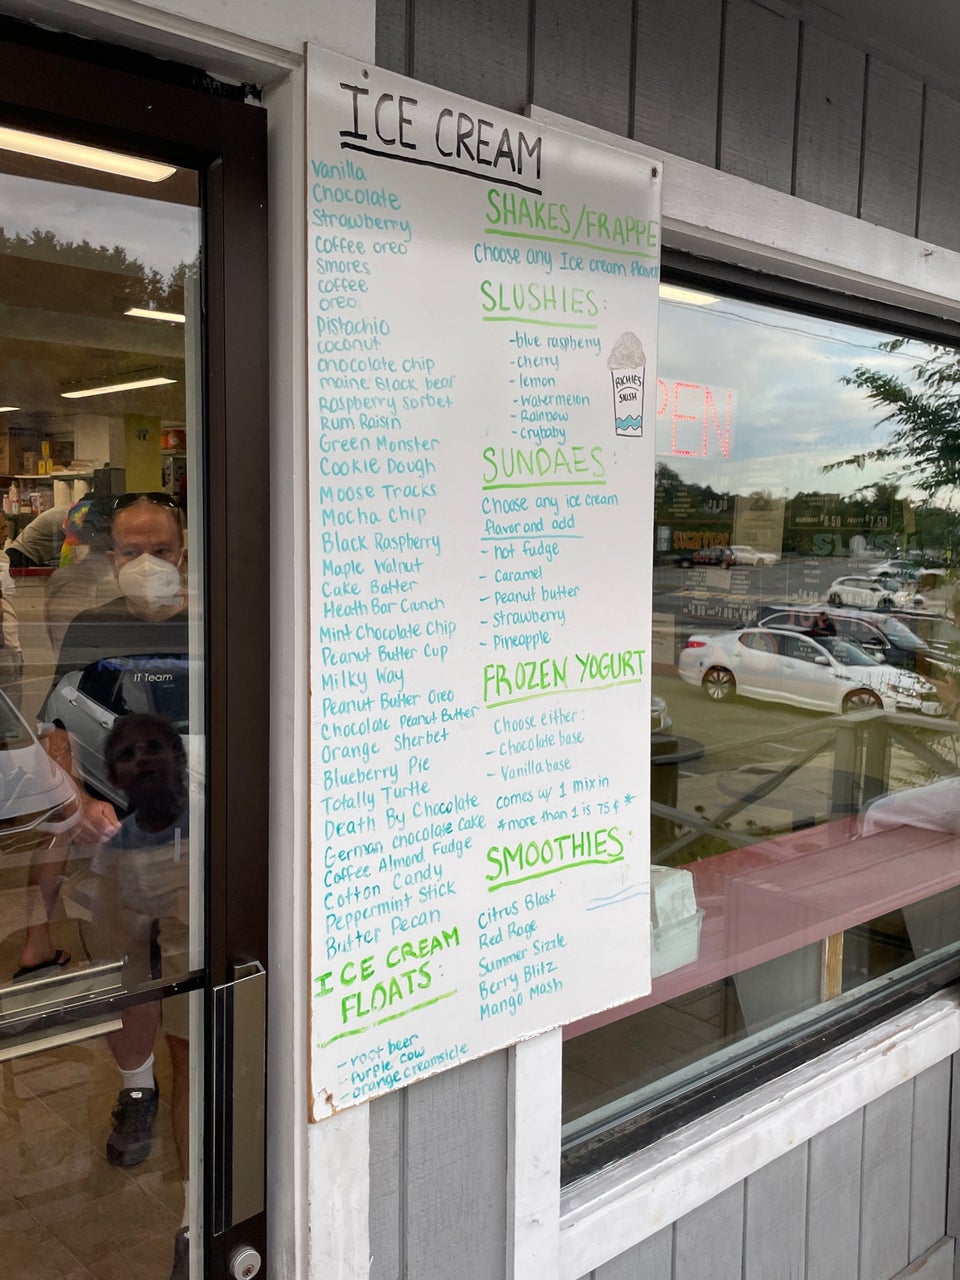 ICE CREAM
Vanilla
Chocolate
Strawberry
Coffee oreo
Smores
Coffee
oreo
Pistachio
coconut
chocolate chip
maine Black bear
Raspberry Sorbet
Rum Raisin
Green Monster
Cookie Dough
Moose Tracks
Mocha Chip
Black Raspberry
Maple Walnut
Cake Batter
Heath Bar Crunch
Mint Chocolate Chip
Peanut Butter Cup
Milky Way
Peanut Butter Oreo
Chocolate Peanut Butter
Orange Sherbet
Blueberry Pie
Totally Turtle
Death By Chocolate
German Chocolate Cake
Coffee Almond Fudge
Cotton Candy
Peppermint Stick
Butter Pecan
ICE CREAM
FLOATS:
- root beer
- Purple Cow
- orange creamsicle
SHAKES/FRAPPE
Choose any Ice cream flavor
SLUSHIES:
- blue raspberry
- cherry
- lemon
- Watermelon
- Rainbow
- Crybaby
RICHIE'S
SLUSH
SUNDAES:
Choose any ice cream
flavor and add
- hot fudge
- Caramel
- Peanut butter
- Strawberry
- Pineapple
FROZEN YOGURT
Choose either:
- Chocolate base
- Vanilla base
comes w/ 1 mix in
*more than 1 is 75¢*
SMOOTHIES:
Citrus Blast
Red Rage
Summer Sizzle
Berry Blitz
Mango Mash
PEN
IT Team